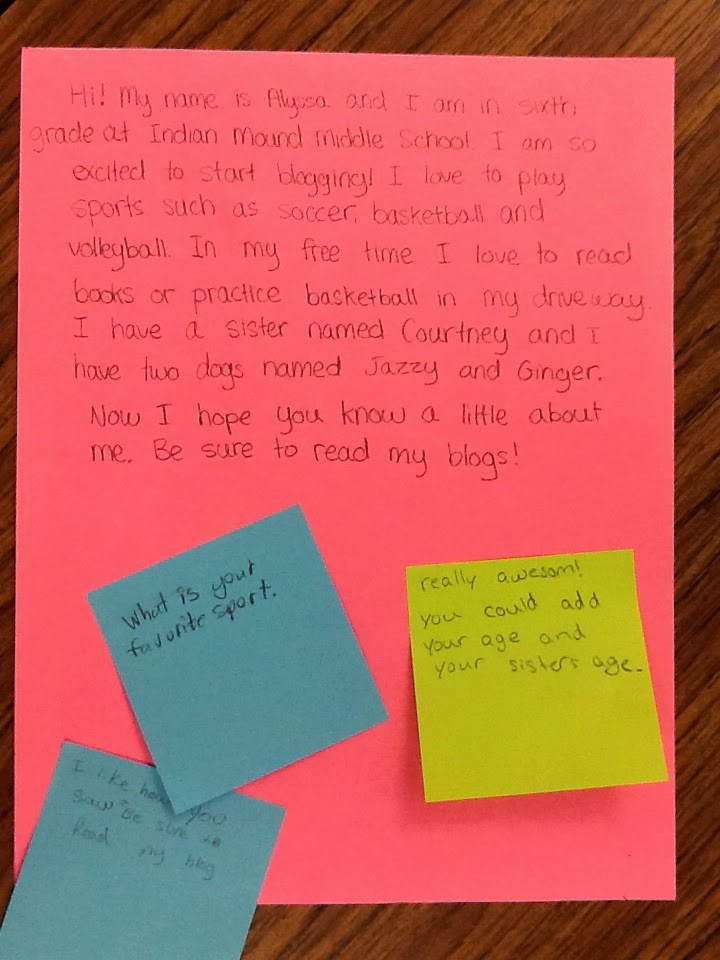 Hi! My name is Alyssa and I am in sixth
grade at Indian Mound Middle School. I am so
excited to start blogging! I love to play
sports such as soccer, basketball and
volleyball. In my free time I love to read
books or practice basketball in my driveway.
I have a sister named Courtney and I
have two dogs named Jazzy and Ginger.
Now I hope you know a little about
me. Be sure to read my blogs!
What is your
favorite sport.
really awesom!
you could add
your age and
your sisters age.
I like how you
saw "Be sure to
Read my blog